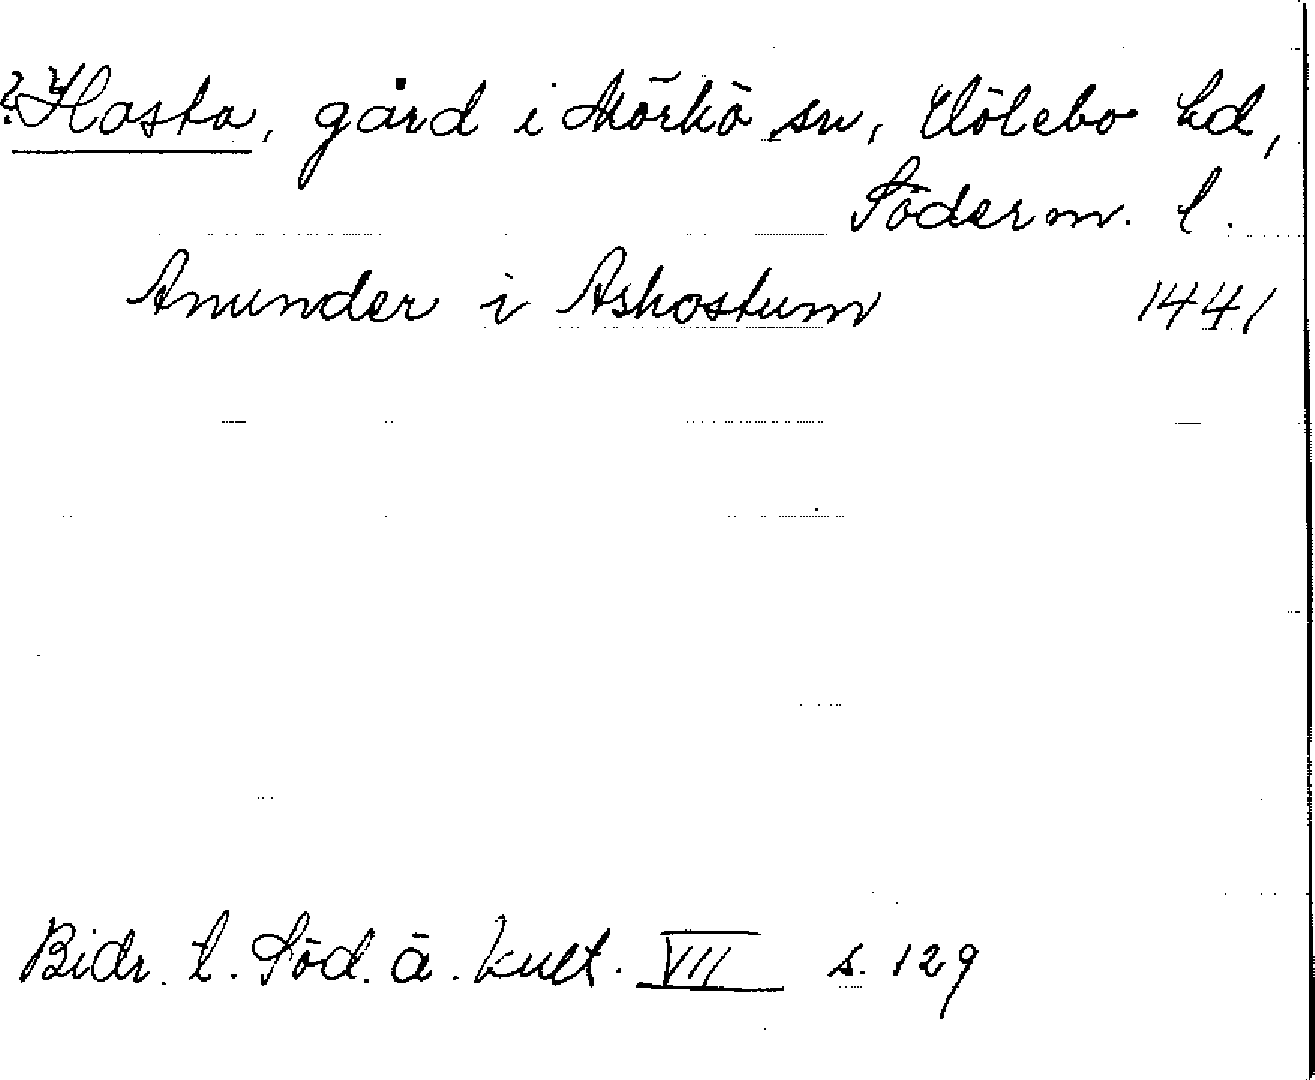 ? Hasta, gård i Mörkö sn, Hölebo hd,
Söderm. l.
Anunder i Askostum 1441
Bidr. t. Söd. ä. kult. VII s. 129